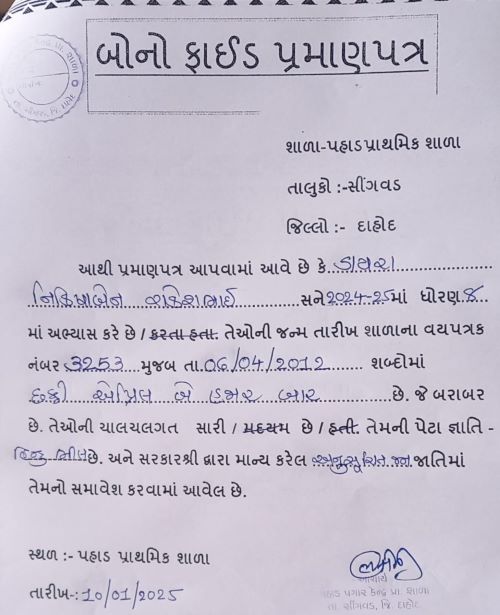 બોનો ફાઈડ પ્રમાણપત્ર
શાળા-પહાડ પ્રાથમિક શાળા
તાલુકો :-સીંગવડ
જિલ્લો :- દાહોદ
આથી પ્રમાણપત્ર આપવામાં આવે છે કે. ડાવરા
નિકિષાબેન રાકેશભાઈ સને 2024-25માં ધોરણ 8
માં અભ્યાસ કરે છે / કરતા હતા. તેઓની જન્મ તારીખ શાળાના વયપત્રક
નંબર :3253 મુજબ તા.06/04/2012 શબ્દોમાં
છઠ્ઠી એપ્રિલ બે હજાર બાર છે. જે બરાબર
છે. તેઓની ચાલચલગત સારી / મધ્યમ છે / હતી. તેમની પેટા જ્ઞાતિ -
હિન્દુ ભીલ છે. અને સરકારશ્રી દ્વારા માન્ય કરેલ અનુસૂચિત જન જાતિમાં
તેમનો સમાવેશ કરવામાં આવેલ છે.
સ્થળ :- પહાડ પ્રાથમિક શાળા
તારીખ-: 10/01/2025
આચાર્ય
પહાડ પગાર કેન્દ્ર પ્રા. શાળા
તા. સીંગવડ, જિ. દાહોદ